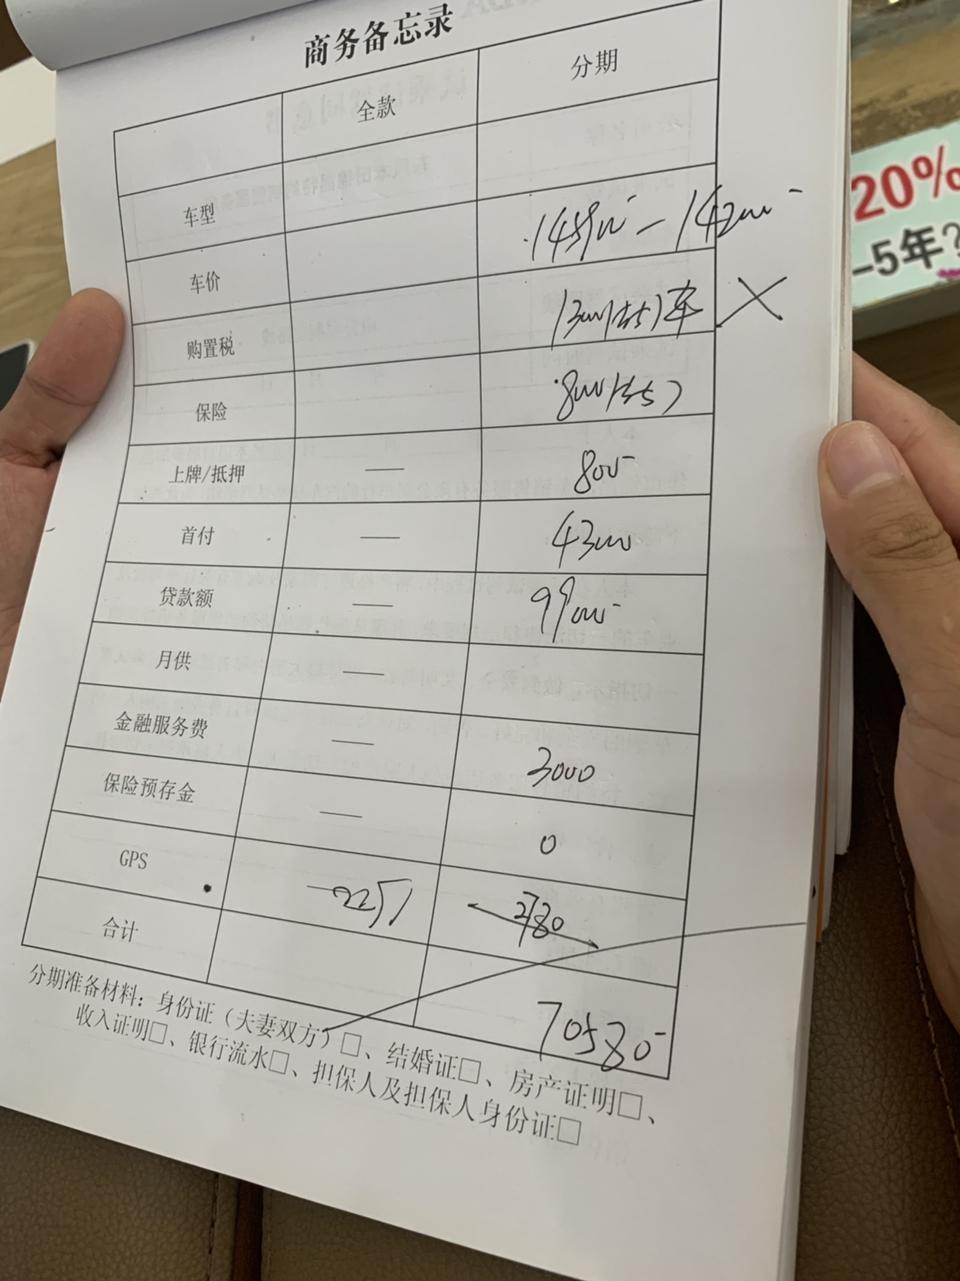 商务备忘录
全款 分期
车型
车价 145900 - 142000
购置税
保险 8000
上牌/抵押 — 800
首付 — 43000
贷款额 — 99000
月供
金融服务费 — 3000
保险预存金 — 0
GPS 2780
合计 70580
分期准备材料：身份证（夫妻双方）□、结婚证□、房产证明□、
收入证明□、银行流水□、担保人及担保人身份证□
20%
-5年?